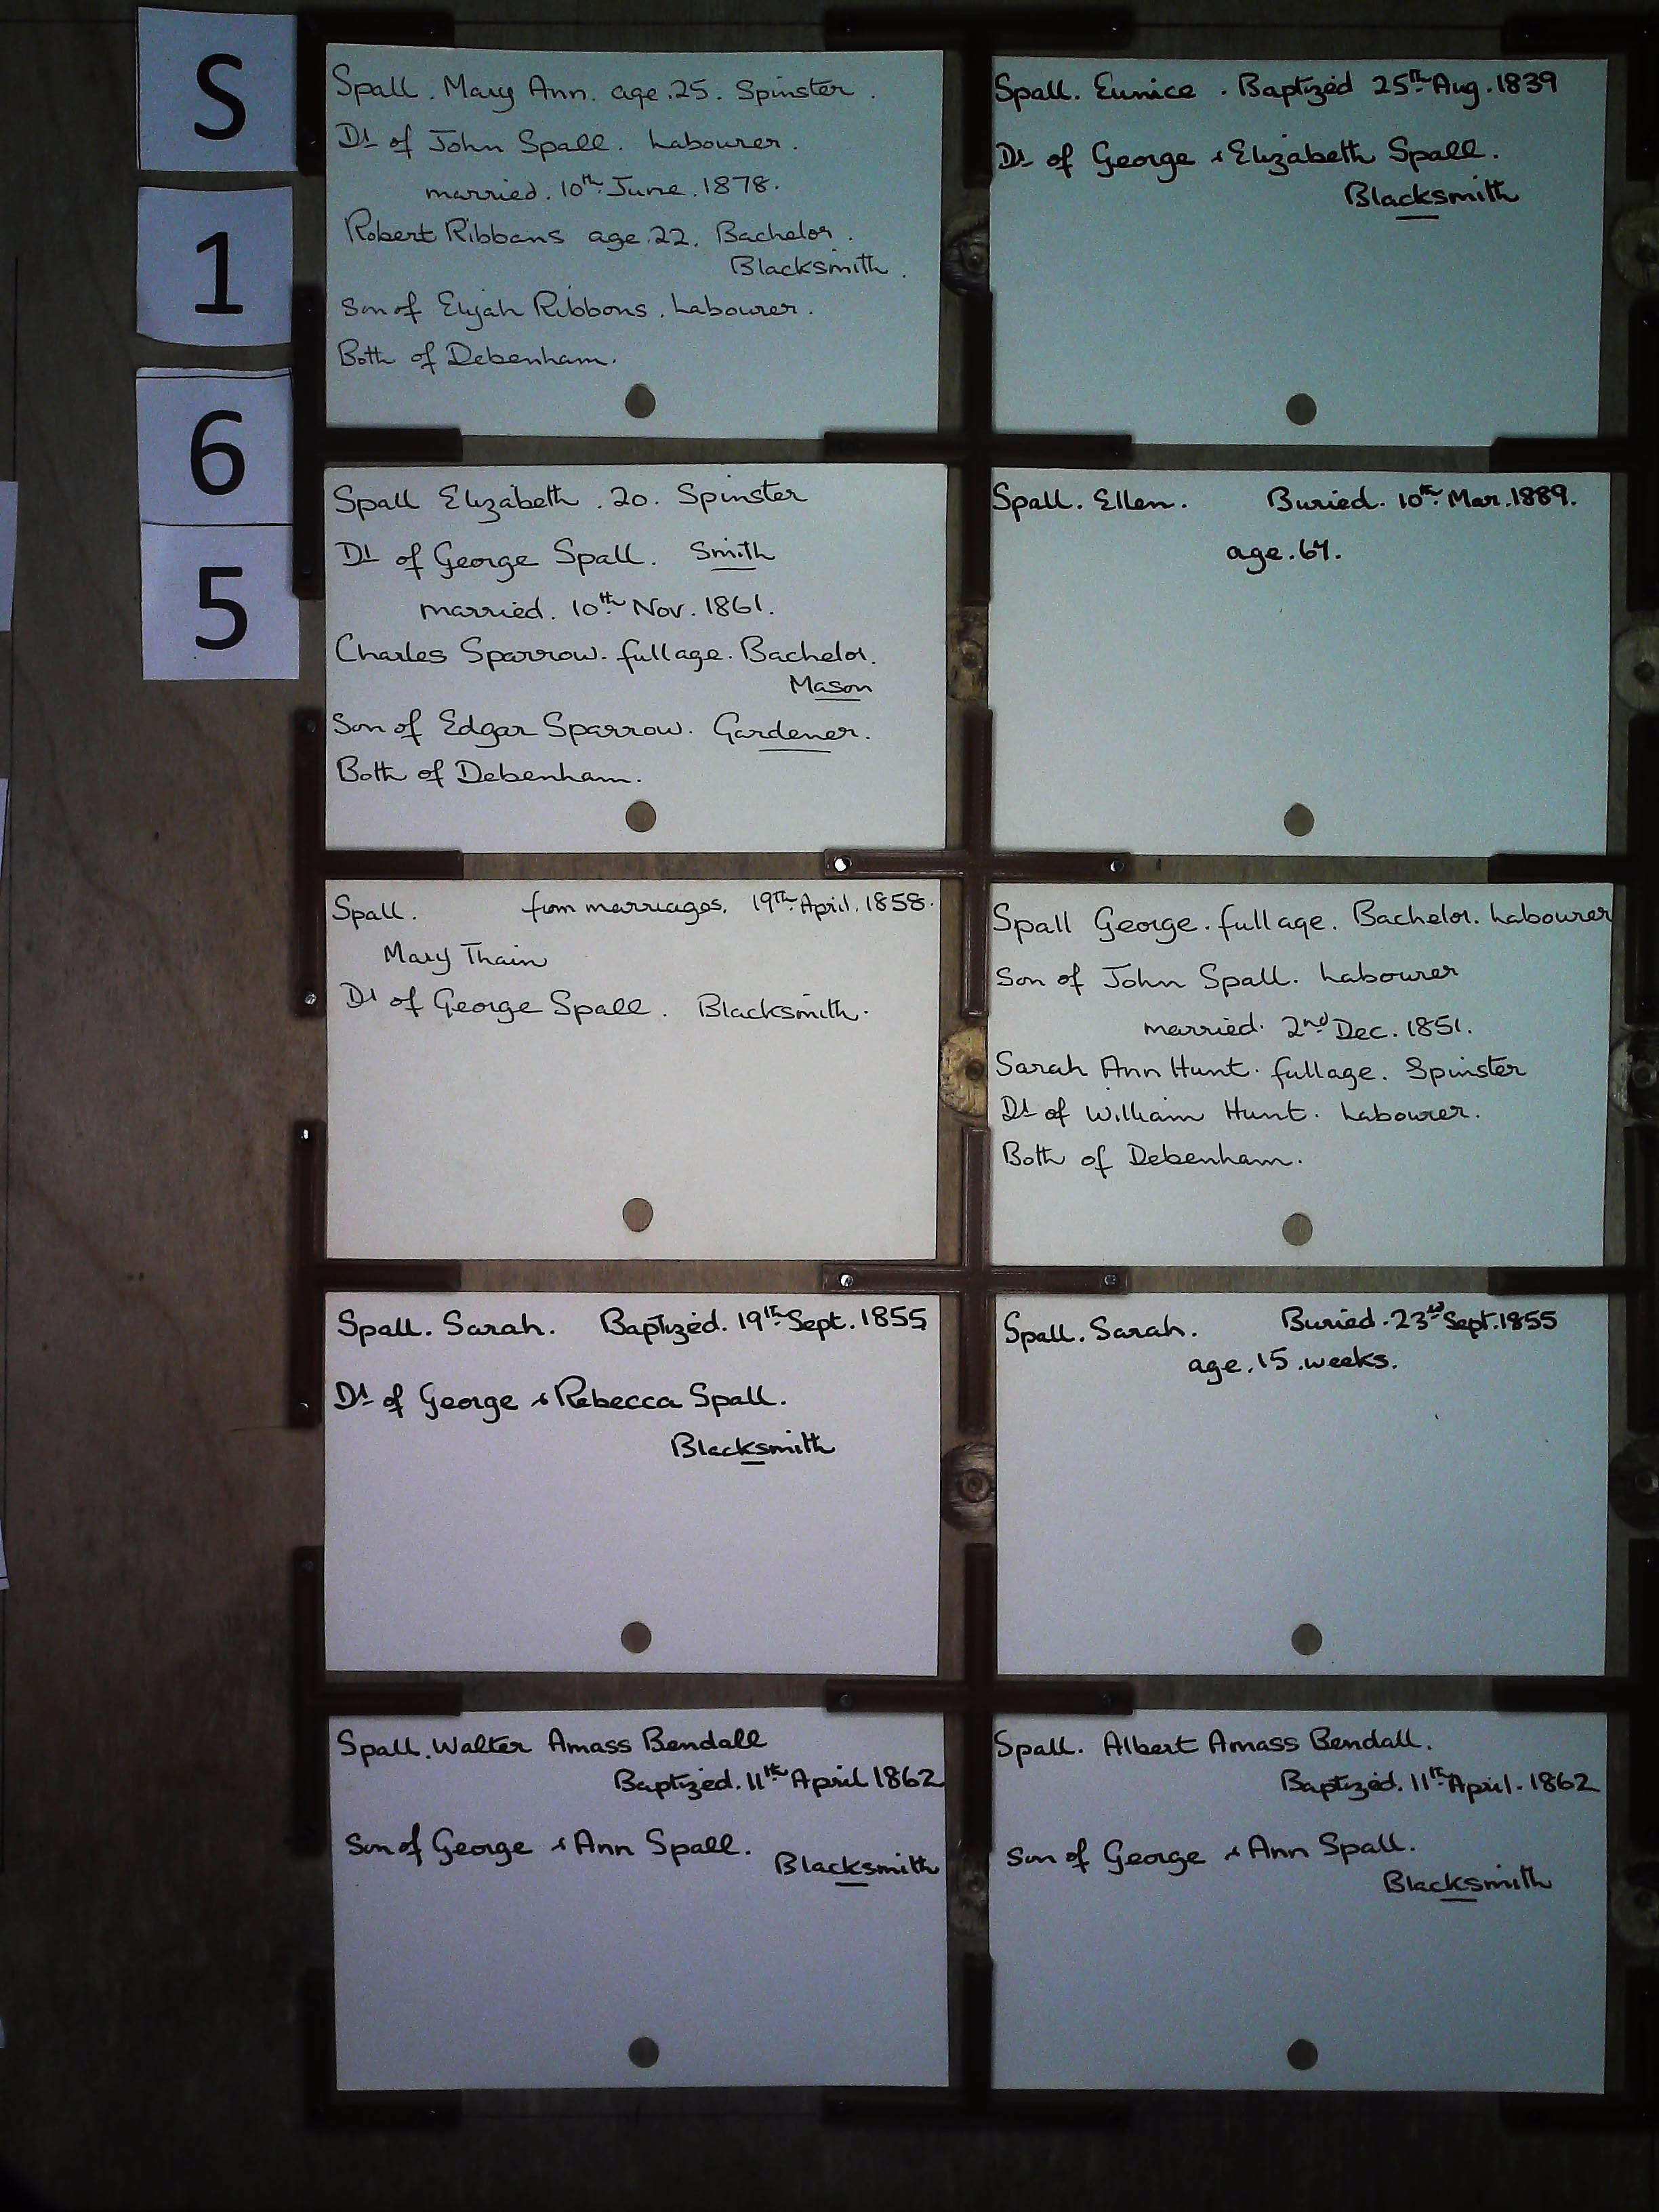 S
1
6
5
Spall. Mary Ann. age. 25. Spinster.
Dt of John Spall. Labourer.
married. 10th June. 1878.
Robert Ribbans age. 22. Bachelor.
Blacksmith.
Son of Elijah Ribbons. Labourer.
Both of Debenham.
Spall. Eunice. Baptized 25th Aug. 1839
Dt of George & Elizabeth Spall.
Blacksmith
Spall Elizabeth. 20. Spinster
Dt of George Spall. Smith
married. 10th Nov. 1861.
Charles Sparrow. full age. Bachelor.
Mason
Son of Edgar Sparrow. Gardener.
Both of Debenham.
Spall. Ellen. Buried. 10th Mar. 1889.
age. 67.
Spall. from marriages. 19th April. 1858.
Mary Thain
Dt of George Spall. Blacksmith.
Spall George. full age. Bachelor. Labourer
Son of John Spall. Labourer
married. 2nd Dec. 1851.
Sarah Ann Hunt. full age. Spinster
Dt of William Hunt. Labourer.
Both of Debenham.
Spall. Sarah. Baptized. 19th Sept. 1855
Dt of George & Rebecca Spall.
Blacksmith
Spall. Sarah. Buried. 23rd Sept. 1855
age. 15. weeks.
Spall. Walter Amass Bendall
Baptized. 11th April 1862
Son of George & Ann Spall.
Blacksmith
Spall. Albert Amass Bendall.
Baptized. 11th April. 1862
Son of George & Ann Spall.
Blacksmith